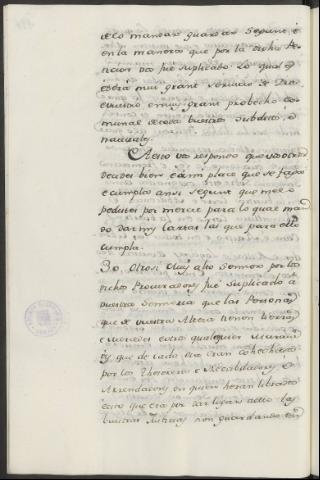 telo mandar guardar segun é
en la manera que por la dicha Pe-
ticion vos fué suplicado. Lo qual es
será muy gran servicio de Dios
é vuestro é muy gran probecho co-
munal de todos vuestros subditos é
naturales.
A esto vos respondo que vos otros
decides bien é á mi place que se faga
é cumpla ansi, segunt que me lo
pedistes por merced para lo qual man-
do dar mys cartas las que para ello
cumpla.
30. Otrosi Muy alto Sennor por los
dichos Procuradores fué suplicado á
vuestra Sennoria que las Personas
que de vuestra Alteza tienen tierras
é mercedes é otros qualesquier Maravedi
ys que de cada dia eran cohechados
por los Thesoreros é Recabdadores é
Arrendadores en quien heran librados
esto que era por dar lugar á ello las
vuestras Justicias non guardando las